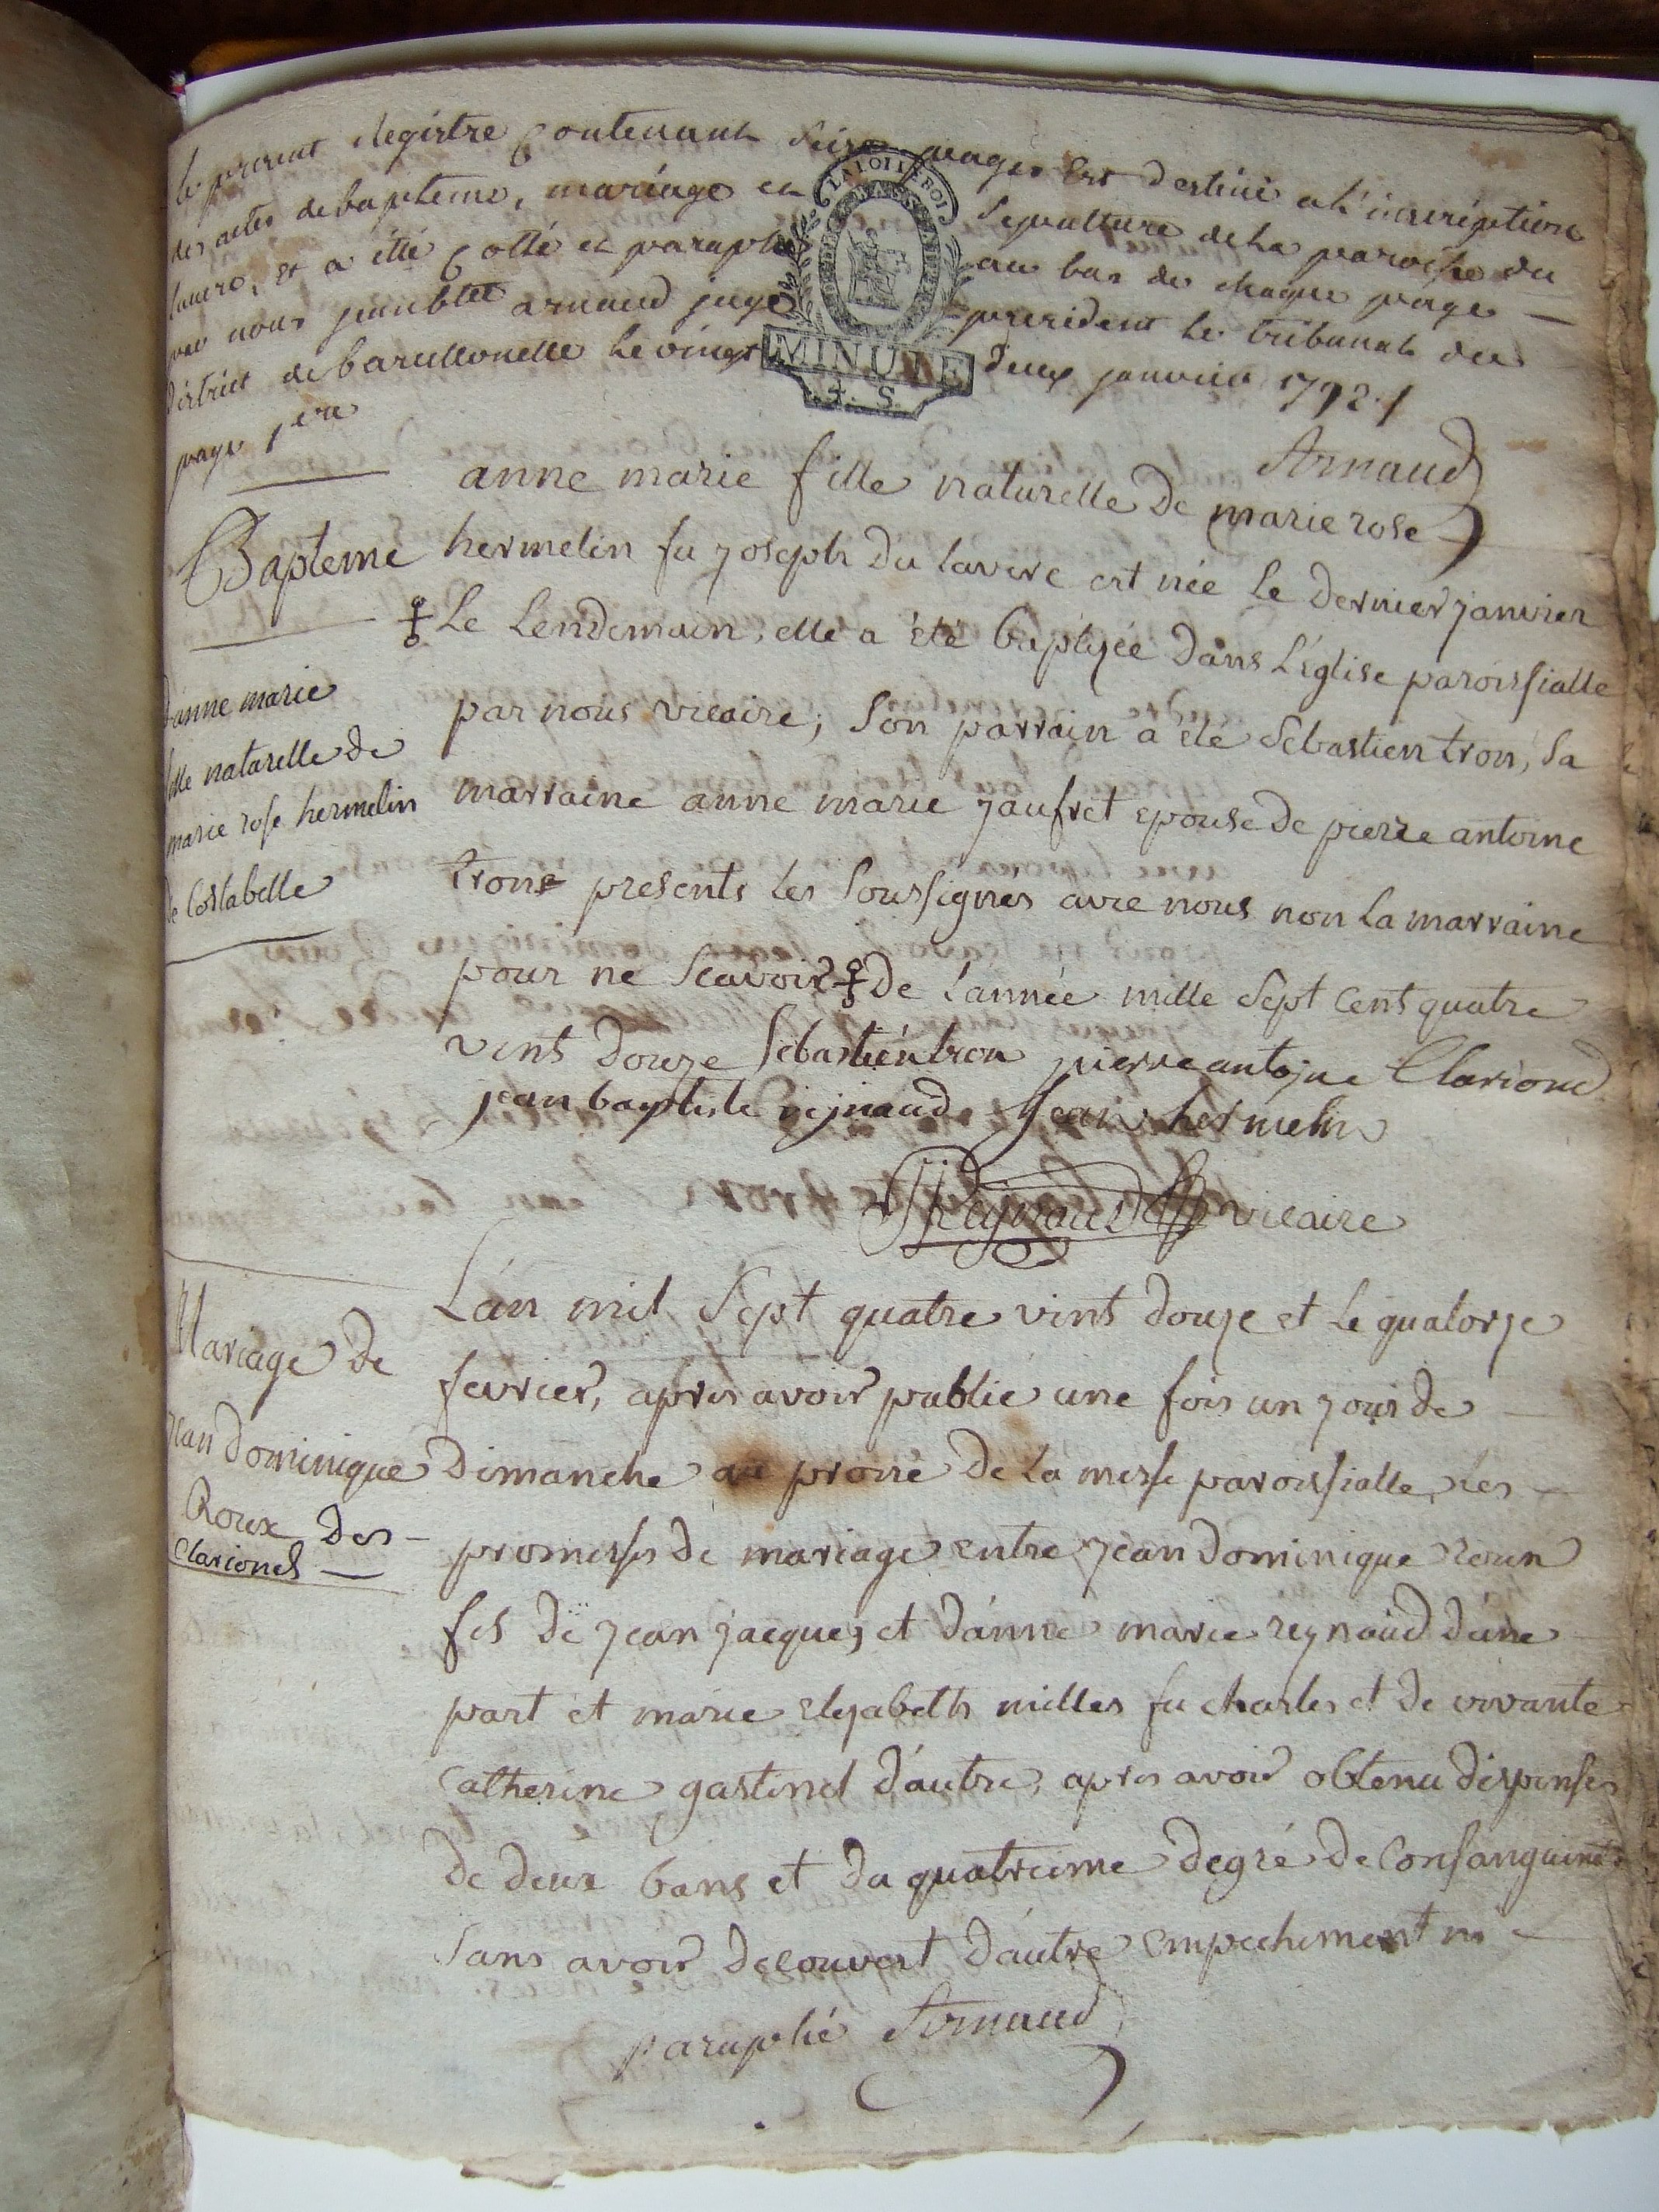 le present Registre Contenant seize pages Est destiné a l'inscription
des actes de bapteme, mariage et sepulture de la paroisse du
lauzre, Et a etté Cotté et paraphé au bas de chaque page —
par nous jean bte arnaud juge president le tribunal du
district de barcellonette le vingt deux janvier 1792 /.
LA LOI LE ROI
MINUTE
4. S.
page 1ere
Arnaud
Bapteme
d'anne marie
fille naturelle de
marie rose hermelin
de Costabelle
anne marie fille naturelle de marie rose
hermelin fu joseph du lavere est née le dernier janvier
Le Lendemain, elle a été baptyée dans L'église paroissialle
par nous vicaire; son parrain a été Sebastien tron, sa
marraine anne marie jaufret epouse de pierre antoine
tron presents les soussignés avec nous non la marraine
pour ne scavoir de l'année mille sept cent quatre
vint douze Sebastien tron pierre antojne Clariond
jean baptiste rejnaud Jean hermelin
Reynaud vicaire
Mariage de
jean dominique
Roux des —
Clarionds —
L'an mil sept quatre vint douze et le quatorze
fevrier, apres avoir publié une fois un jour de —
Dimanche au prone de la messe paroissialle, les —
promesses de mariage entre jean dominique roux
fils de jean jacques et d'anne marie reynaud d'une
part et marie elyabeth milles fu charles et de vivante
Catherine gastinel d'autre, apres avoir obtenu dispenses
de deux bans et du quatrieme degré de Consanguinité
sans avoir decouvert d'autre empechement ni —
paraphé Arnaud